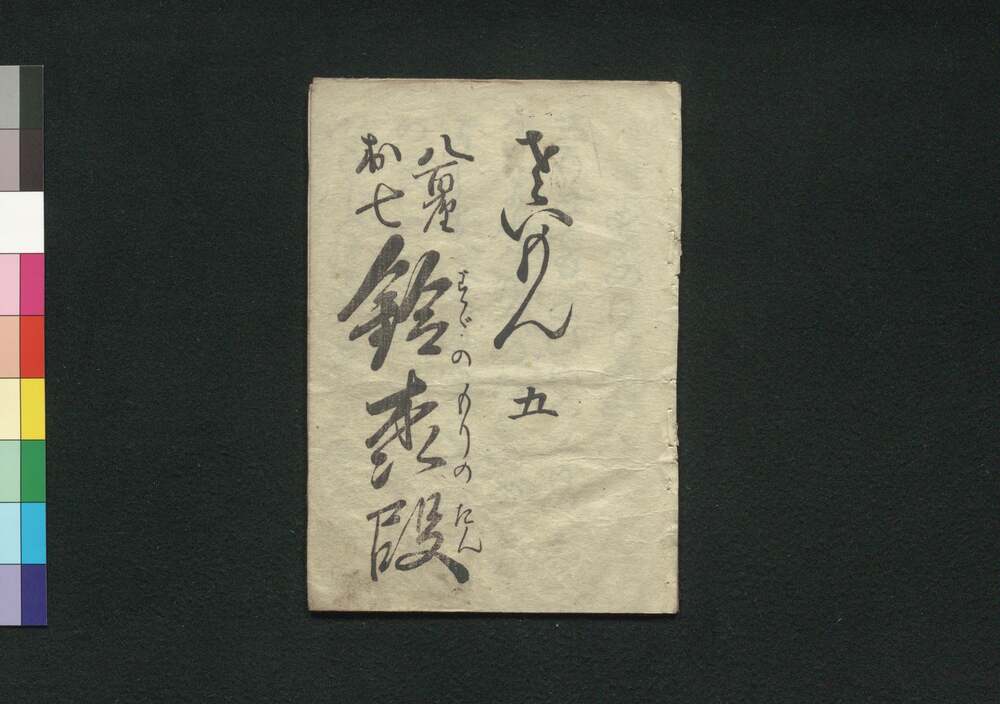 さいもん 五
八百屋
お七
鈴森段
すゞのもりのたん